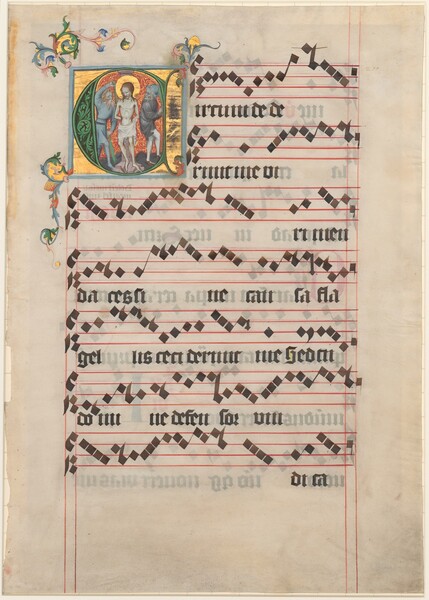 ircum de de
runt me vi
ri men
da ces si ne cau sa fla
gel lis ceci derunt me Sed tu
do mi ne defen sor
di ca